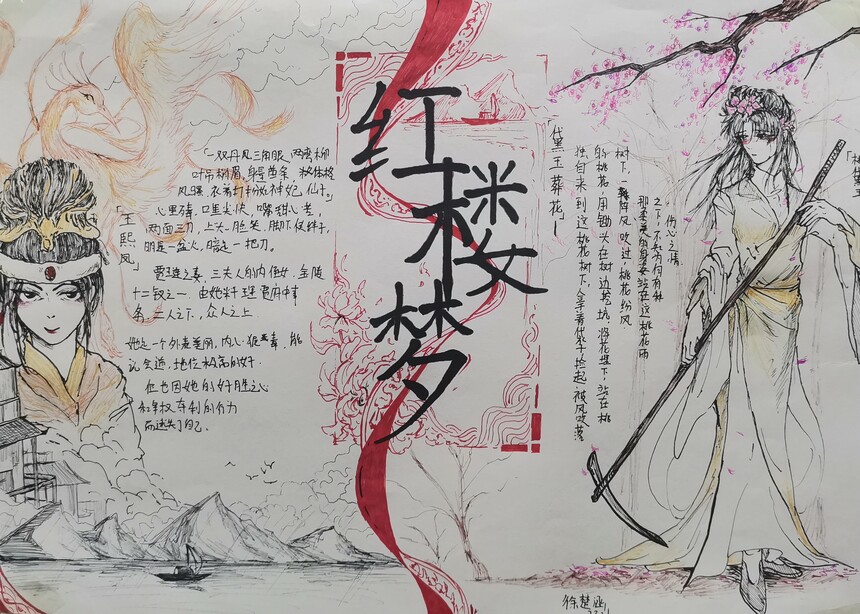 红楼梦
「王熙凤」
「一双丹凤三角眼，两弯柳
叶吊梢眉，身量苗条，体格
风骚，衣着打扮如神妃仙子」
心里 口里尖快，嘴甜心苦，
两面三刀，上头脸笑，脚下使绊子，
明是一盆火，暗是一把刀。
贾琏之妻，王夫人的内侄女，金陵
十二钗之一，由她料理贾府中事
务，二人之下，众人之上
她是一个外表美丽，内心狠毒，能
说会道，地位极高的
但也因她的好胜之心
和争权夺利的行为
而迷失了自己．
「黛玉葬花」
独自来到这桃花树下，拿着袋子，捡起被风吹落
的桃花，用锄头在树边挖坑，将花埋下，站在桃
树下，一阵阵风吹过，桃花纷风
那柔美的身姿站在这桃花雨
之下，不知为何有种
伤心之情
徐楚涵